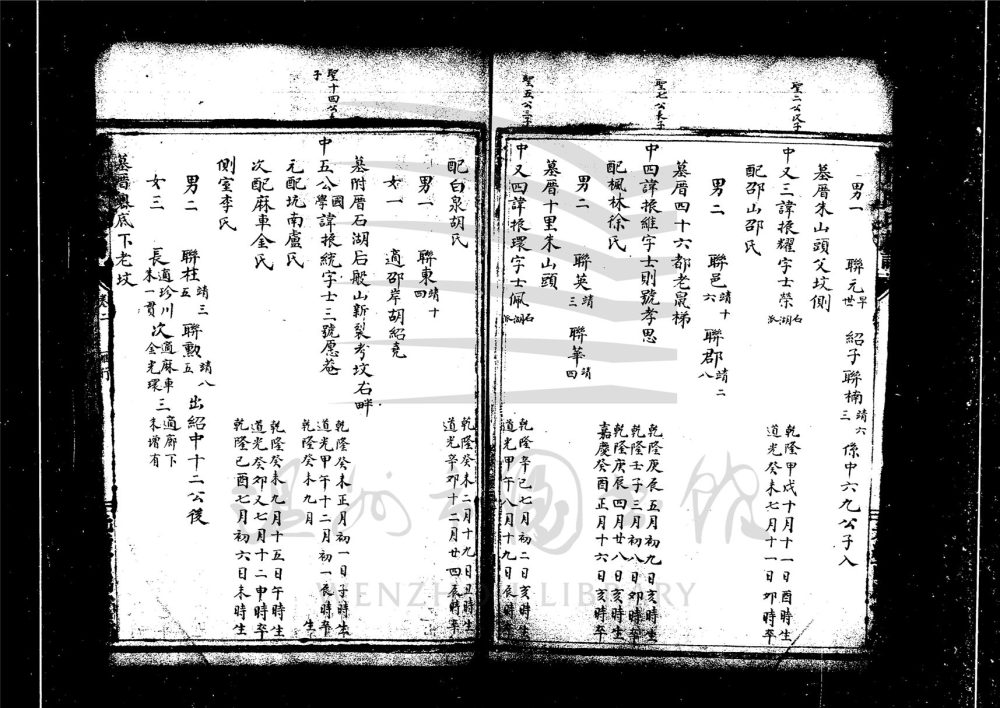 聖二公次子
聖七公長子
聖五公三子
男一 聯元早世 紹子聯楠靖六三 係中六九公子入
墓厝朱山頭父墳側
中又三諱振耀字士榮石湖派 乾隆甲戌十月十一日酉時生
道光癸未七月十一日卯時卒
配邵山邵氏
男二 聯邑靖十六 聯郡靖二八
墓厝四十六都老鼠梯
中四諱振維字士則號孝思 乾隆庚辰五月初九日亥時生
乾隆壬子三月初八日卯時卒
配楓林徐氏 乾隆庚辰四月廿八日亥時生
嘉慶癸酉正月十六日亥時卒
男二 聯英靖三 聯華靖四
墓厝十里朱山頭
中又四諱振環字士佩石湖派 乾隆辛巳七月初二日亥時生
道光甲午八月十九日辰時卒
聖十四公長子
配白泉胡氏 乾隆癸未二月十九日丑時生
道光辛卯十二月廿四辰時卒
男一 聯東靖十四
女一 適邵岸胡紹堯
墓附厝石湖后般山新裂考坟右畔
中五公國學諱振統字士三號愿菴 乾隆癸未正月初一日子時生
道光甲午十二月初一辰時卒
元配坑南盧氏 乾隆癸未九月 生
次配麻車金氏 乾隆癸未九月十五日午時生
道光癸卯又七月十二申時卒
側室李氏 乾隆己酉七月初六日未時生
男二 聯桂靖三五 聯勲靖八五 出紹中十二公後
女三 長適珍川朱一貫 次適麻車金光環 三適廊下朱增有
墓厝底下老坟